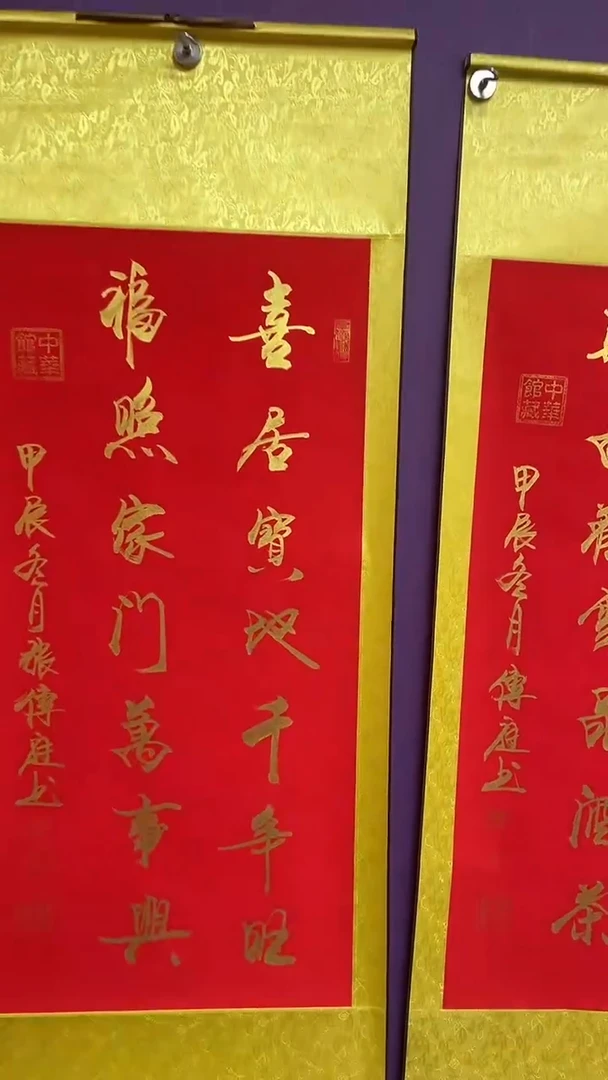 喜居寶地千年旺
福照家門萬事興
甲辰冬月張傳庭书
中華館藏
藏寶品酒茶
甲辰冬月傳庭书
中華館藏